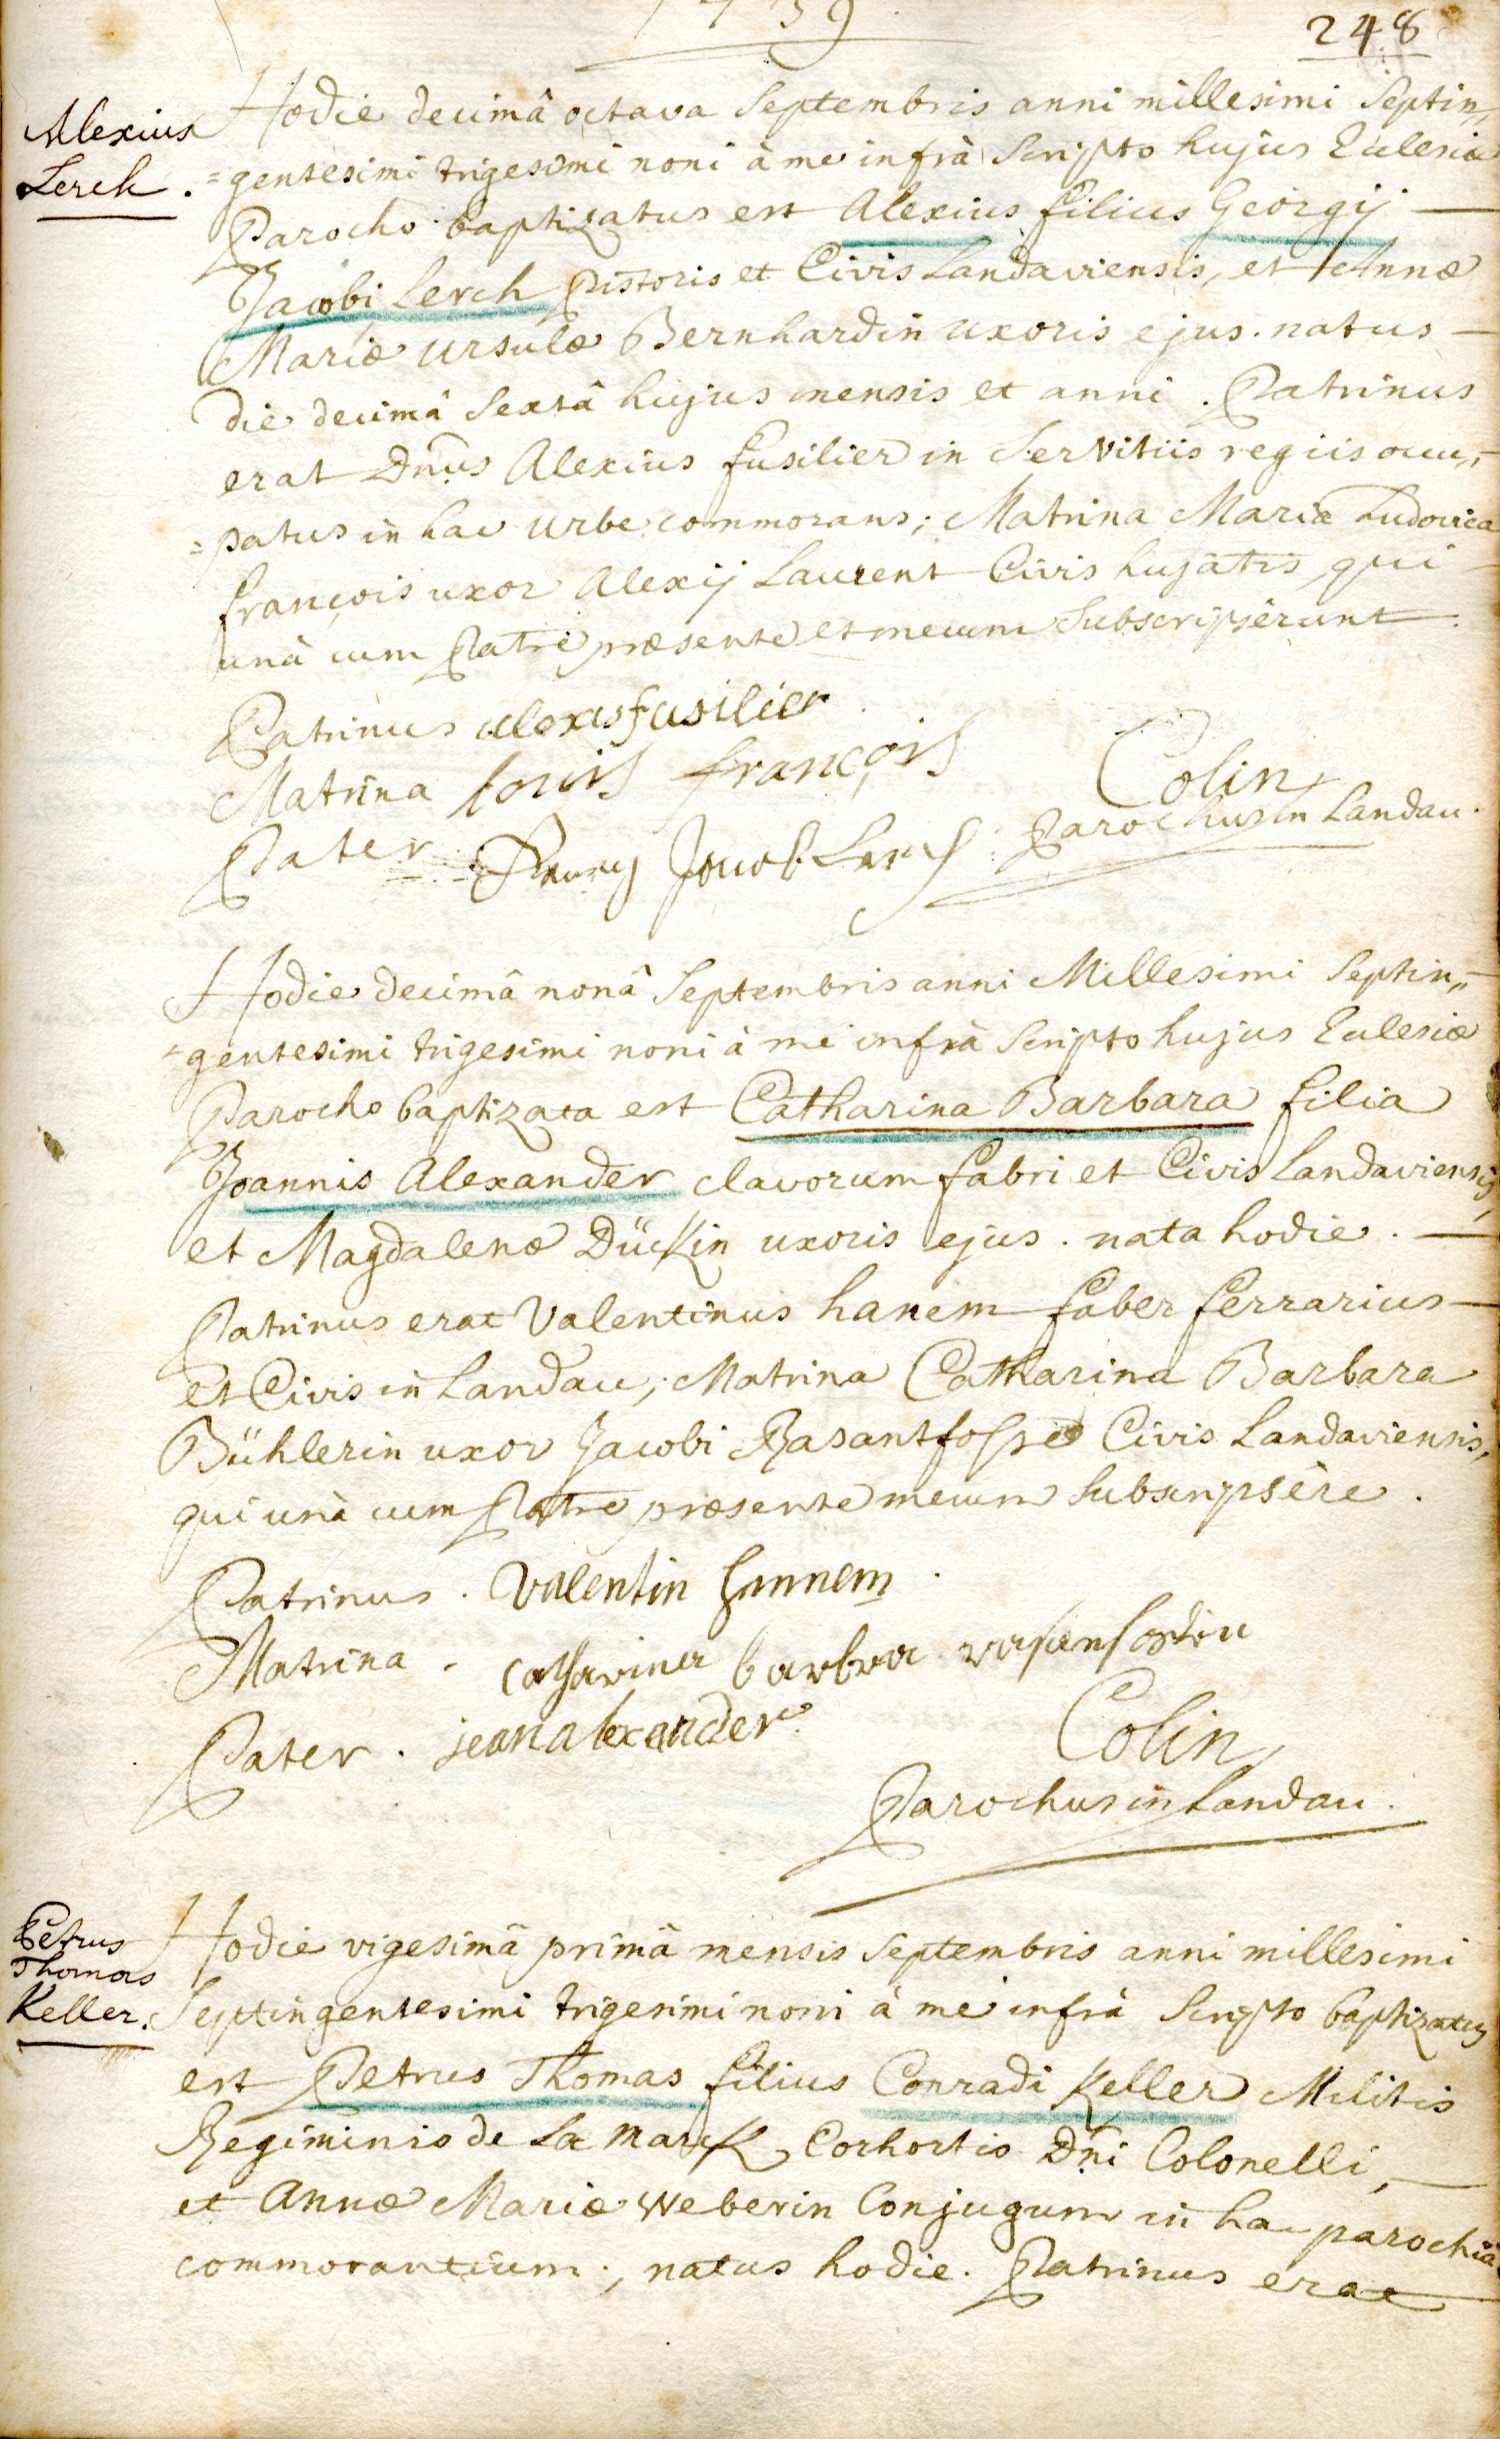 1739
248
Alexius
Lerch.
Hodie decimâ octava Septembris anni millesimi Septin„
=gentesimi trigesimi noni à me infrà Scripto hujus Ecclesiæ
Parocho baptizatus est Alexius filius Georgij —
Jacobi Lerch pistoris et Civis Landaviensis, et Annæ
Mariæ Ursulæ Bernhardin uxoris ejus. natus —
die decimâ Sextâ hujus mensis et anni. Patrinus
erat Dnus Alexius fusilier in Servitiis regiis occu„
=patus in hac Urbe commorans; Matrina Maria Ludovica
françois uxor Alexij Laurent Civis hujatis, qui
unà cum Patre præsente et mecum Subscripserunt.
Patrinus alexis fusilier
Matrina louis françois
Colin
Pater Jacob Lerch
Parochus in Landau.
Hodie decimâ nonâ Septembris anni Millesimi Septin„
=gentesimi trigesimi noni à me infrà Scripto hujus Ecclesiæ
Parocho baptizata est Catharina Barbara filia
Joannis Alexander clavorum fabri et Civis Landaviensis,
et Magdalenæ Dückin uxoris ejus. nata hodie. —
Patrinus erat Valentinus hanem faber ferrarius —
et Civis in Landau; Matrina Catharina Barbara
Bühlerin uxor Jacobi Rasantfosse Civis Landaviensis,
qui unà cum Patre præsente mecum Subscripsêre.
Patrinus. Valentin hannem.
Matrina. Catharina barbra
Pater. jean alexander
Colin
Parochus in Landau.
Petrus
Thomas
Keller.
Hodie vigesimâ primâ mensis Septembris anni millesimi
Septingentesimi trigesimi noni à me infrà Scripto baptizatus
est Petrus Thomas filius Conradi Keller Militis
Regiminis de La Marck Corhortis Dni Colonelli, —
et Annæ Mariæ Weberin Conjugum in hac parochiâ
commorantium; natus hodie. Patrinus erat